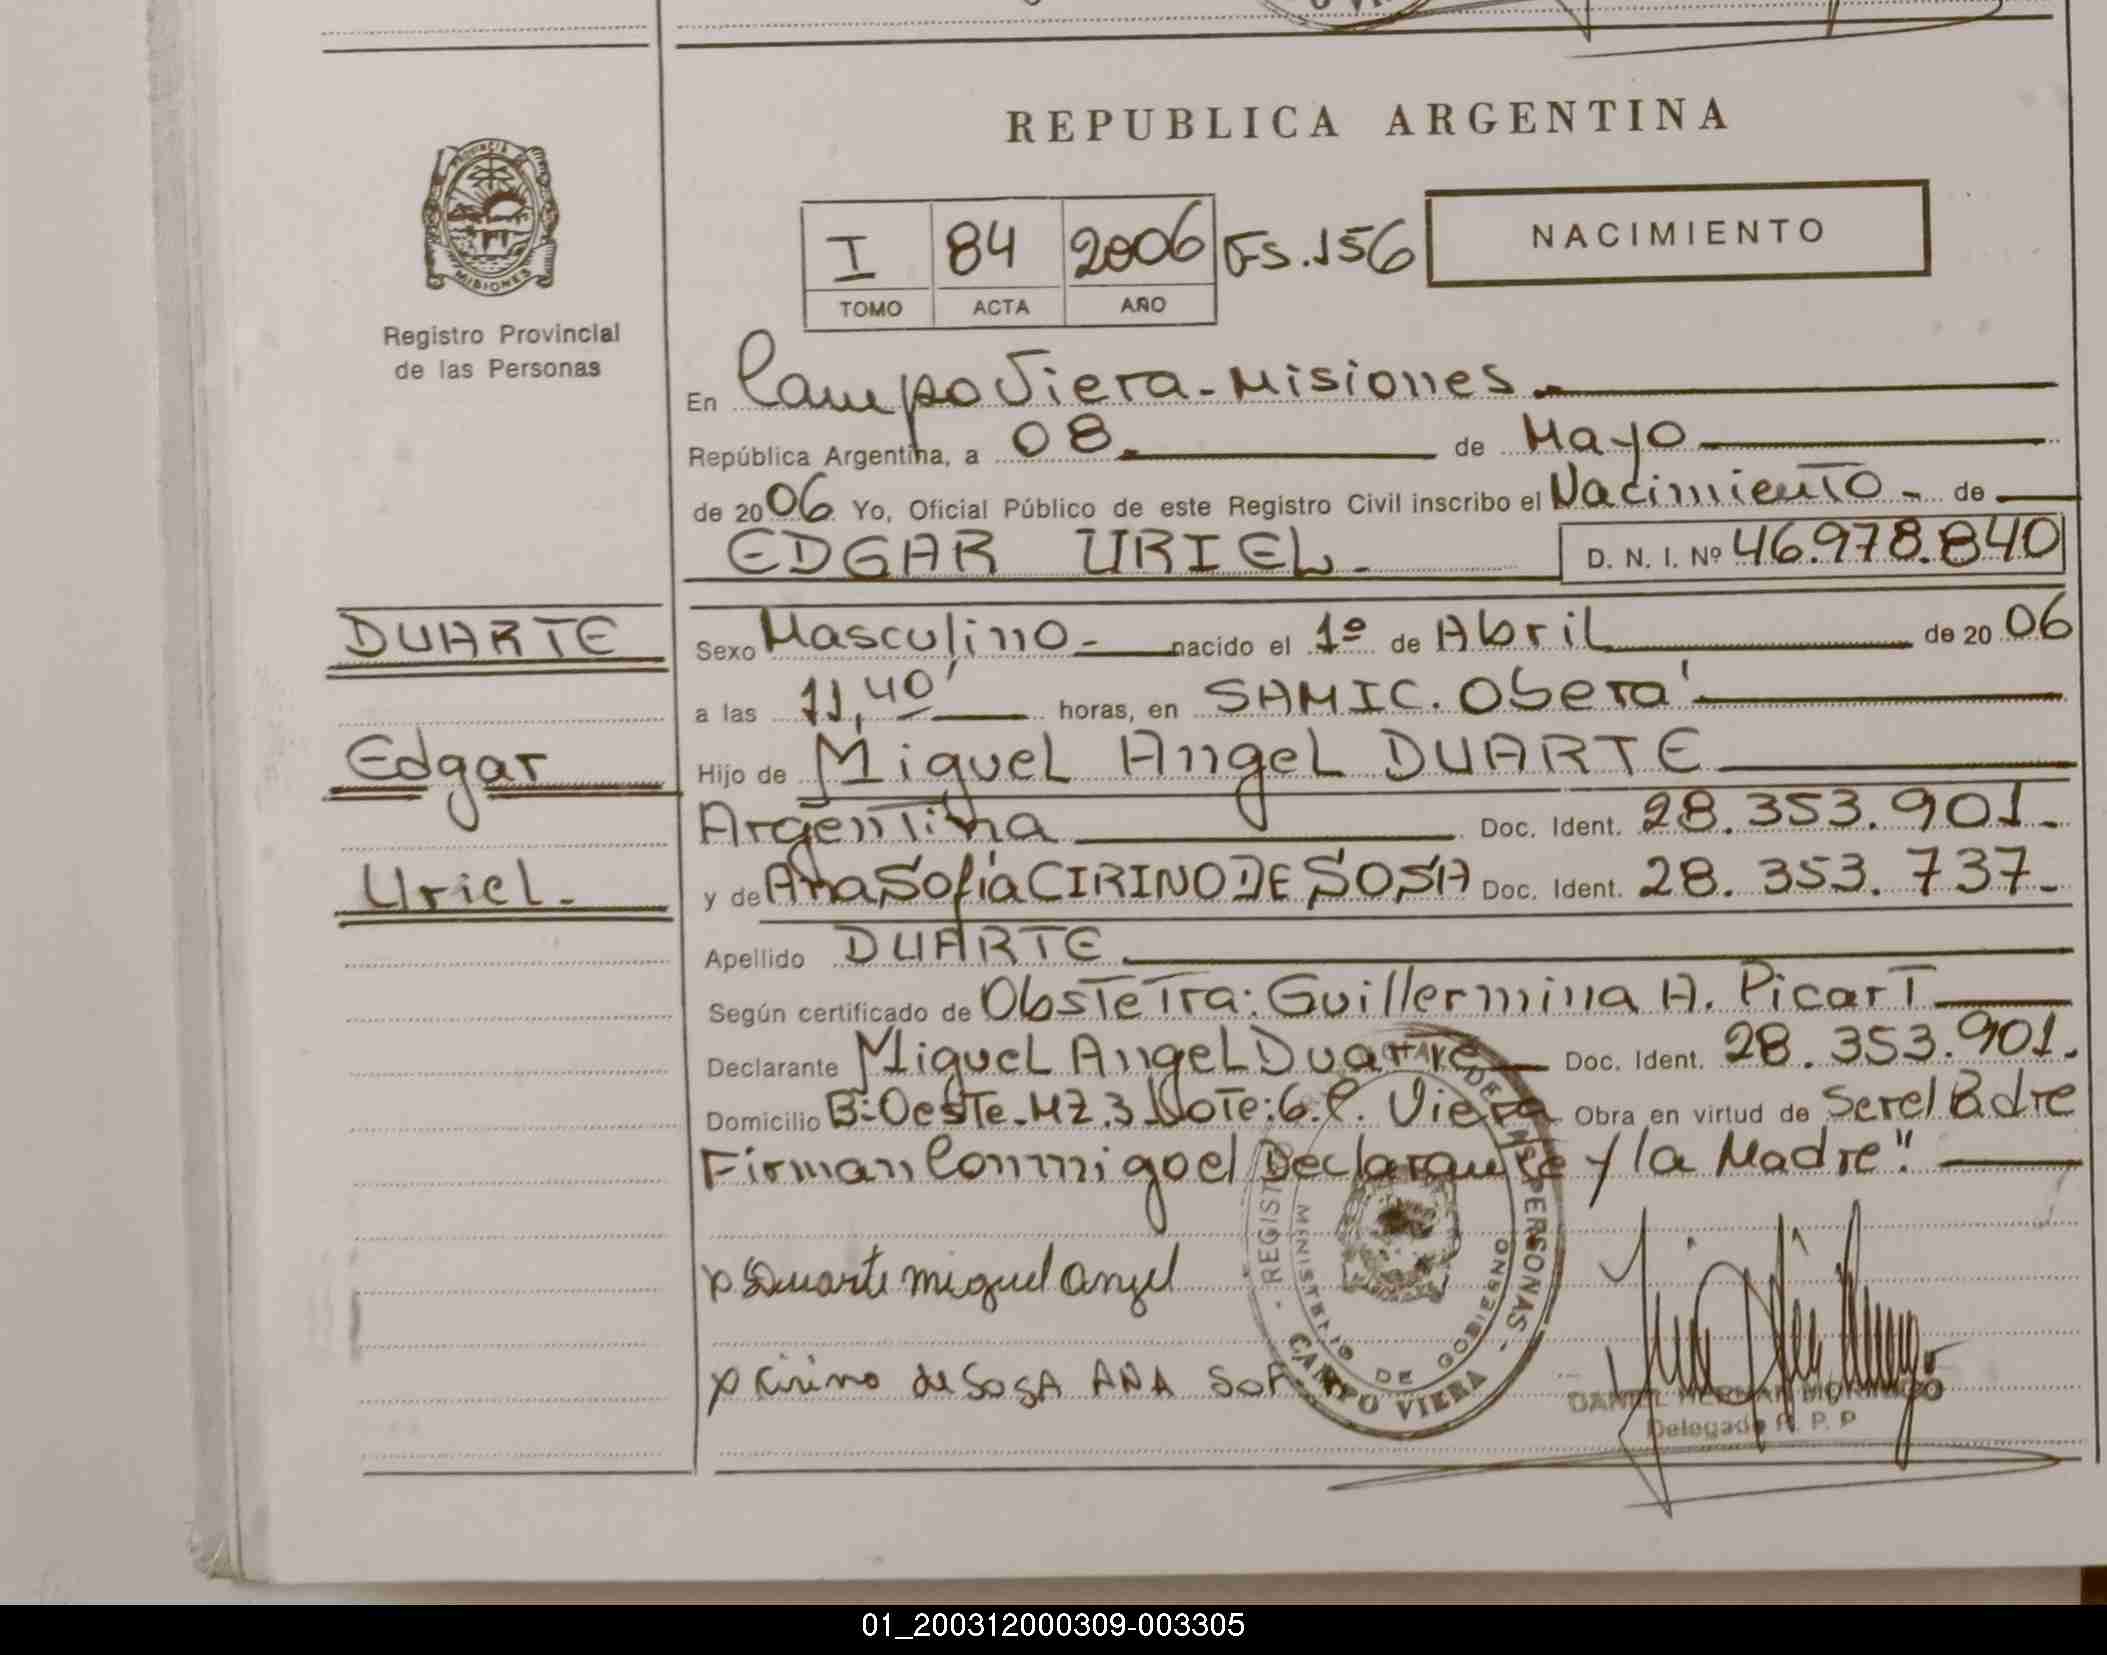 REPUBLICA ARGENTINA
PROVINCIA DE
MISIONES
Registro Provincial
de las Personas
I 84 2006 Fs.156
TOMO ACTA AÑO
NACIMIENTO
En Campo Viera-Misiones.
República Argentina, a 08 de Mayo
de 2006 Yo, Oficial Público de este Registro Civil inscribo el Nacimiento - de
EDGAR URIEL.- D. N. I. Nº 46.978.840
DUARTE
Edgar
Uriel.-
Sexo Masculino- nacido el 1º de Abril de 2006
a las 11,40' horas, en SAMIC. Oberá
Hijo de Miguel Angel DUARTE
Argentina Doc. Ident. 28.353.901.-
y de Ana Sofía CIRINO DE SOSA Doc. Ident. 28.353.737.-
Apellido DUARTE
Según certificado de Obstetra: Guillermina A. Picart
Declarante Miguel Angel Duarte Doc. Ident. 28.353.901.-
Domicilio B: Oeste-MZ.3-Lote:6.C. Viera Obra en virtud de Ser el Padre
Firman Conmigo el Declarante y la Madre".
x Duarte miguel angel
x Cirino de SosA ANA SOF
REGISTRO DE LAS PERSONAS
MINISTERIO DE GOBIERNO
CAMPO VIERA
DANIEL HERNAN
Delegado R. P. P
01_200312000309-003305